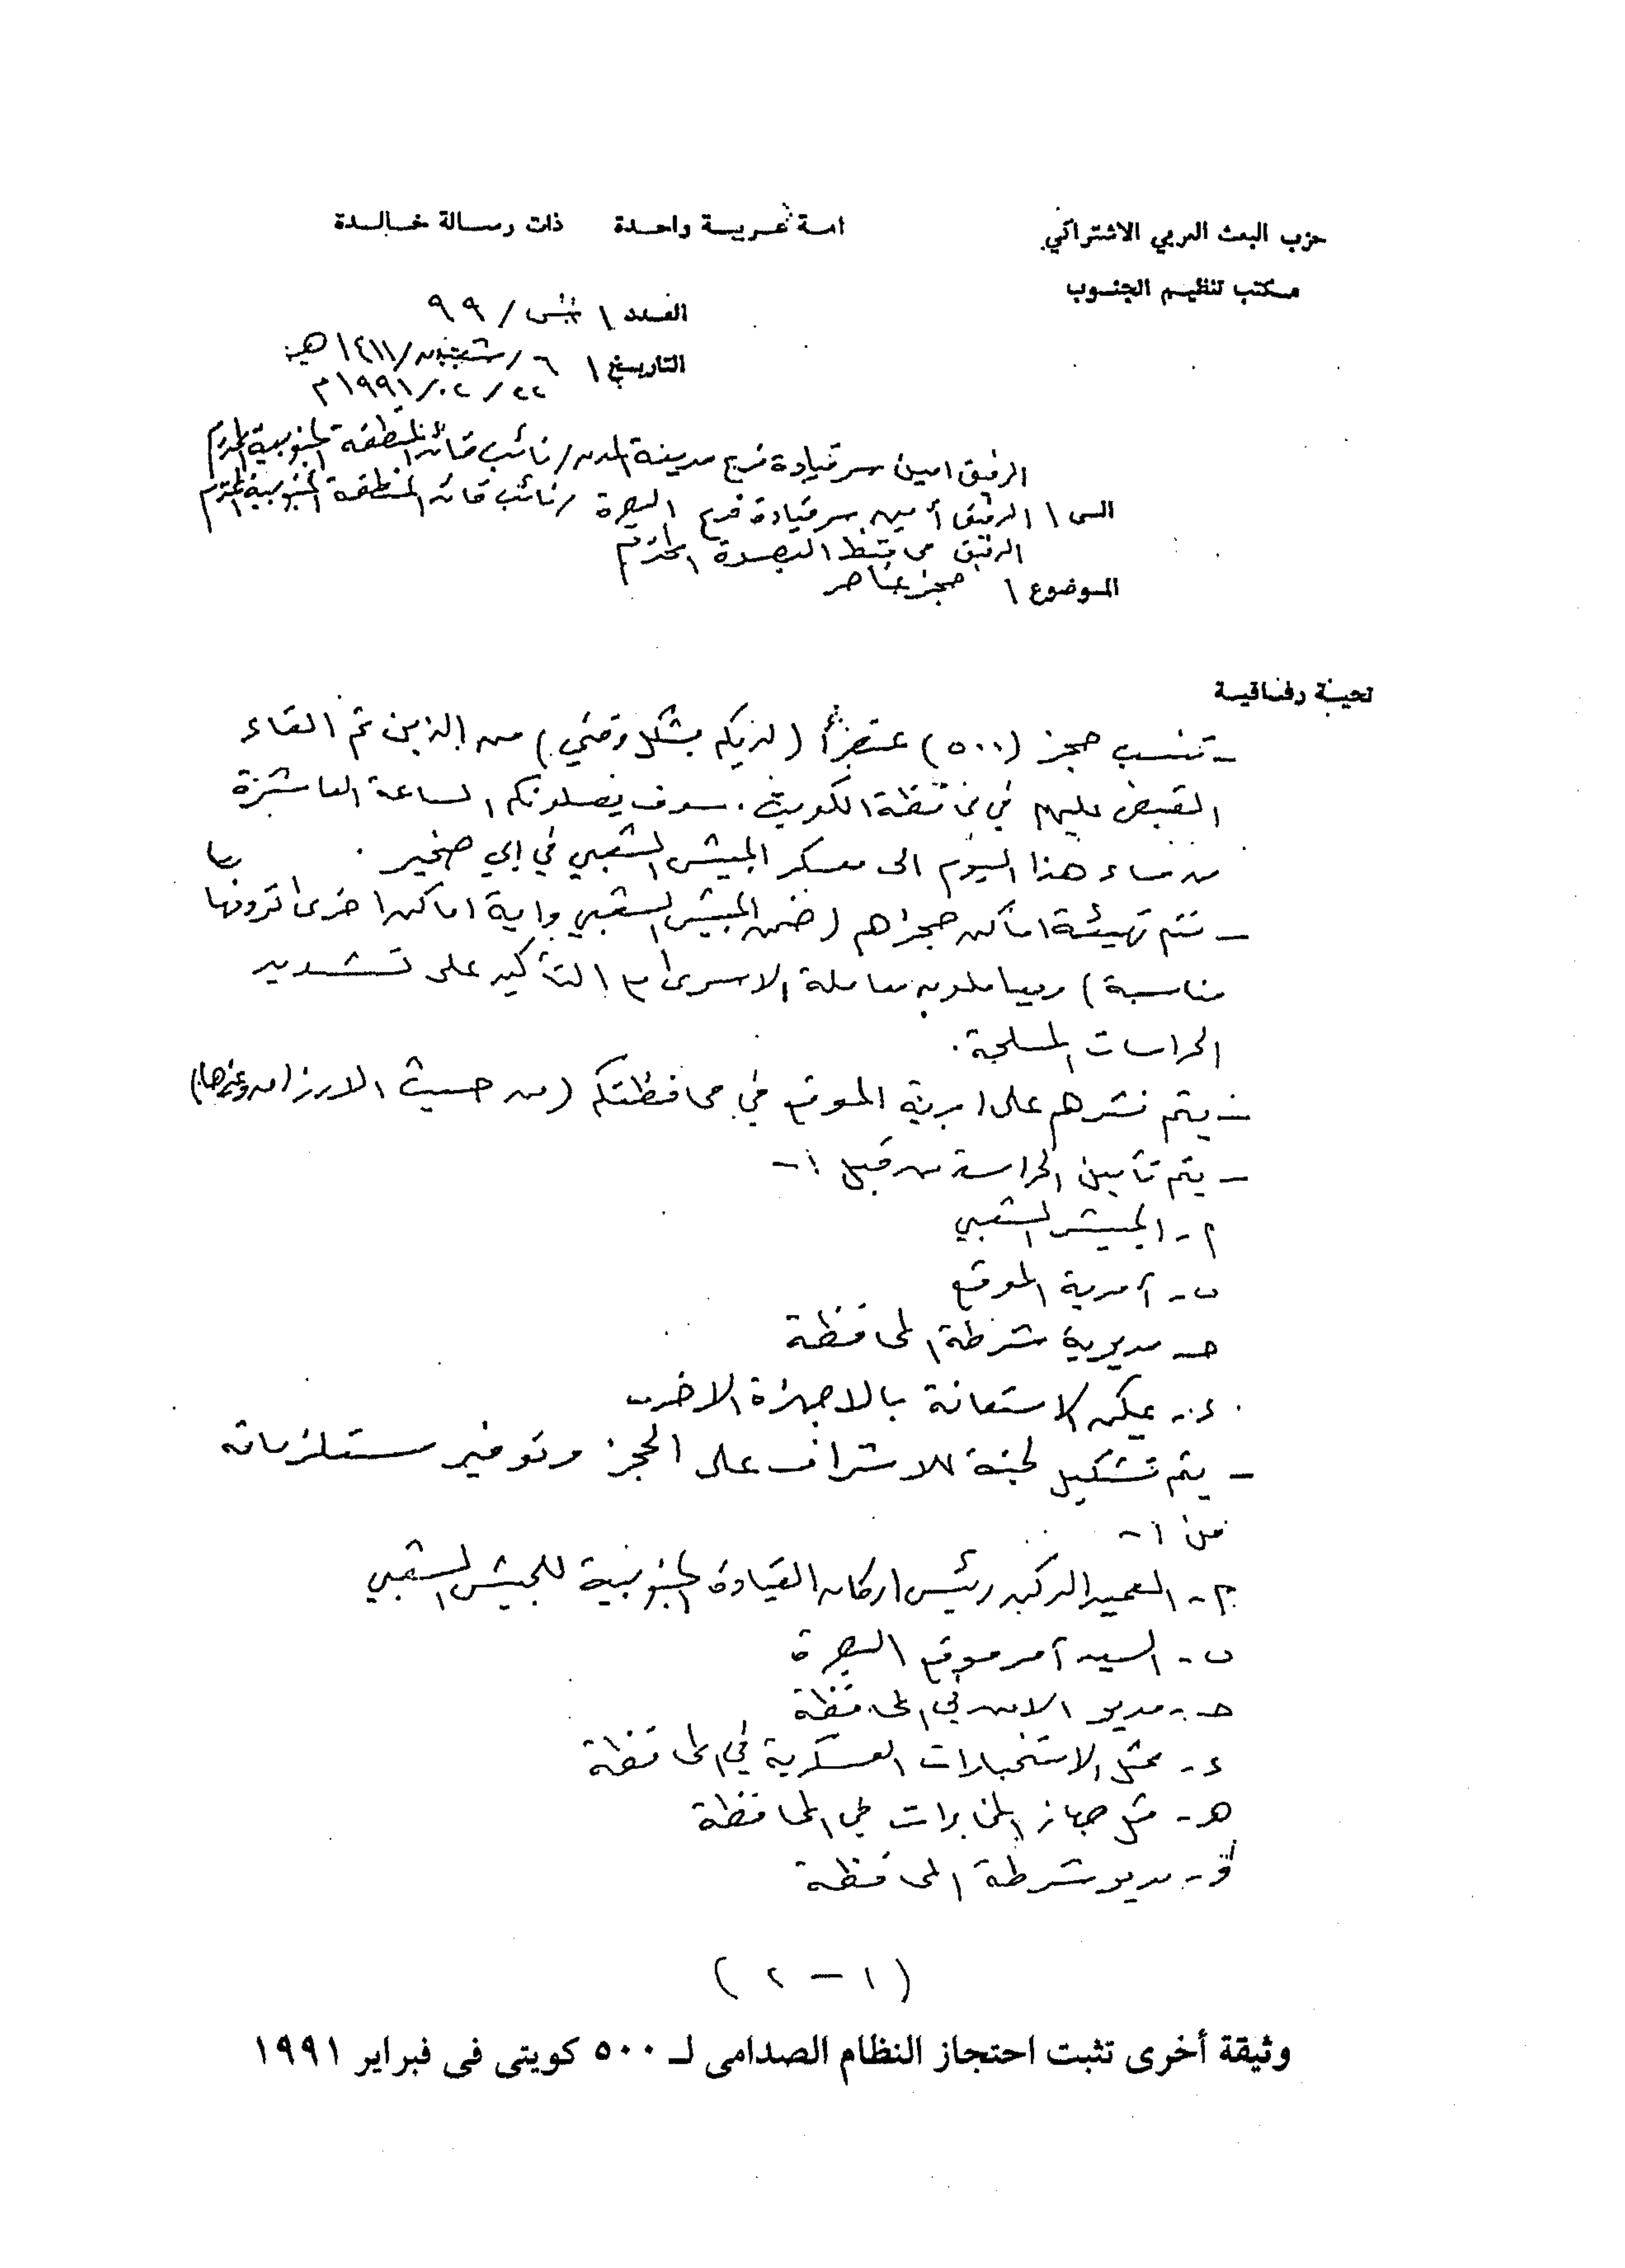 حزب البعث العربي الاشتراكي
امة عربية واحدة ذات رسالة خالدة
مكتب تنظيم الجنوب
العدد / / ٩٩
التاريخ / ٦ / شعبان / ١٤١١ هـ
٢٢ / ٠٢ / ١٩٩١ م
الرفيق امين سر قيادة فرع مدينة المدن / نائب قائد المنطقة الجنوبية المحترم
الى / الرفيق أمين سر قيادة فرع البصرة / نائب قائد المنطقة الجنوبية المحترم
الرفيق محافظ البصرة المحترم
الموضوع / حجز عناصر
تحية رفاقية
- تنسب حجز (٥٠٠) عنصراً (لديكم بشكل وقتي) من الذين تم القاء
القبض عليهم في محافظة الكويت . سوف يصلونكم الساعة العاشرة
من مساء هذا اليوم الى معسكر الجيش الشعبي في ابي صخير .
- تتم تهيئة اماكن حجزهم (ضمن الجيش الشعبي واية اماكن اخرى ترونها
مناسبة) ويعاملون معاملة الاسرى مع التأكيد على تشديد
الحراسات المسلحة .
- يتم نشرهم على امرية الموقع في محافظتكم (من حيث الارزاق وغيرها)
- يتم تأمين الحراسة من قبل :-
أ- الجيش الشعبي
ب- آمرية الموقع
حـ- مديرية شرطة المحافظة
ء- يمكن الاستعانة بالاجهزة الاخرى
- يتم تشكيل لجنة للاشراف على الحجز وتوفير مستلزماته
من :-
أ- العميد الركن رئيس اركان القيادة الجنوبية للجيش الشعبي
ب- السيد آمر موقع البصرة
حـ- مدير الامن في المحافظة
ء- ممثل الاستخبارات العسكرية في المحافظة
هـ- ممثل جهاز المخابرات في المحافظة
و- مدير شرطة المحافظة
(١ - ٢)
وثيقة أخرى تثبت احتجاز النظام الصدامى لـ ٥٠٠ كويتى فى فبراير ١٩٩١